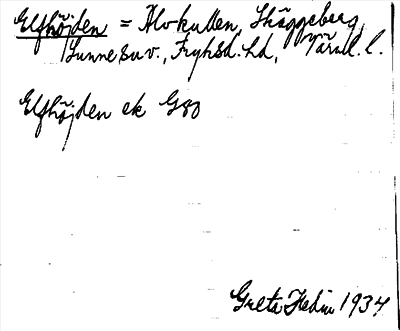 Elfhöjden = Älvkullen, Skäggeberg,
Sunne sn v., Fryksd. hd, Värml. l.
Elfhöjden ek G80
Greta Hedin 1934